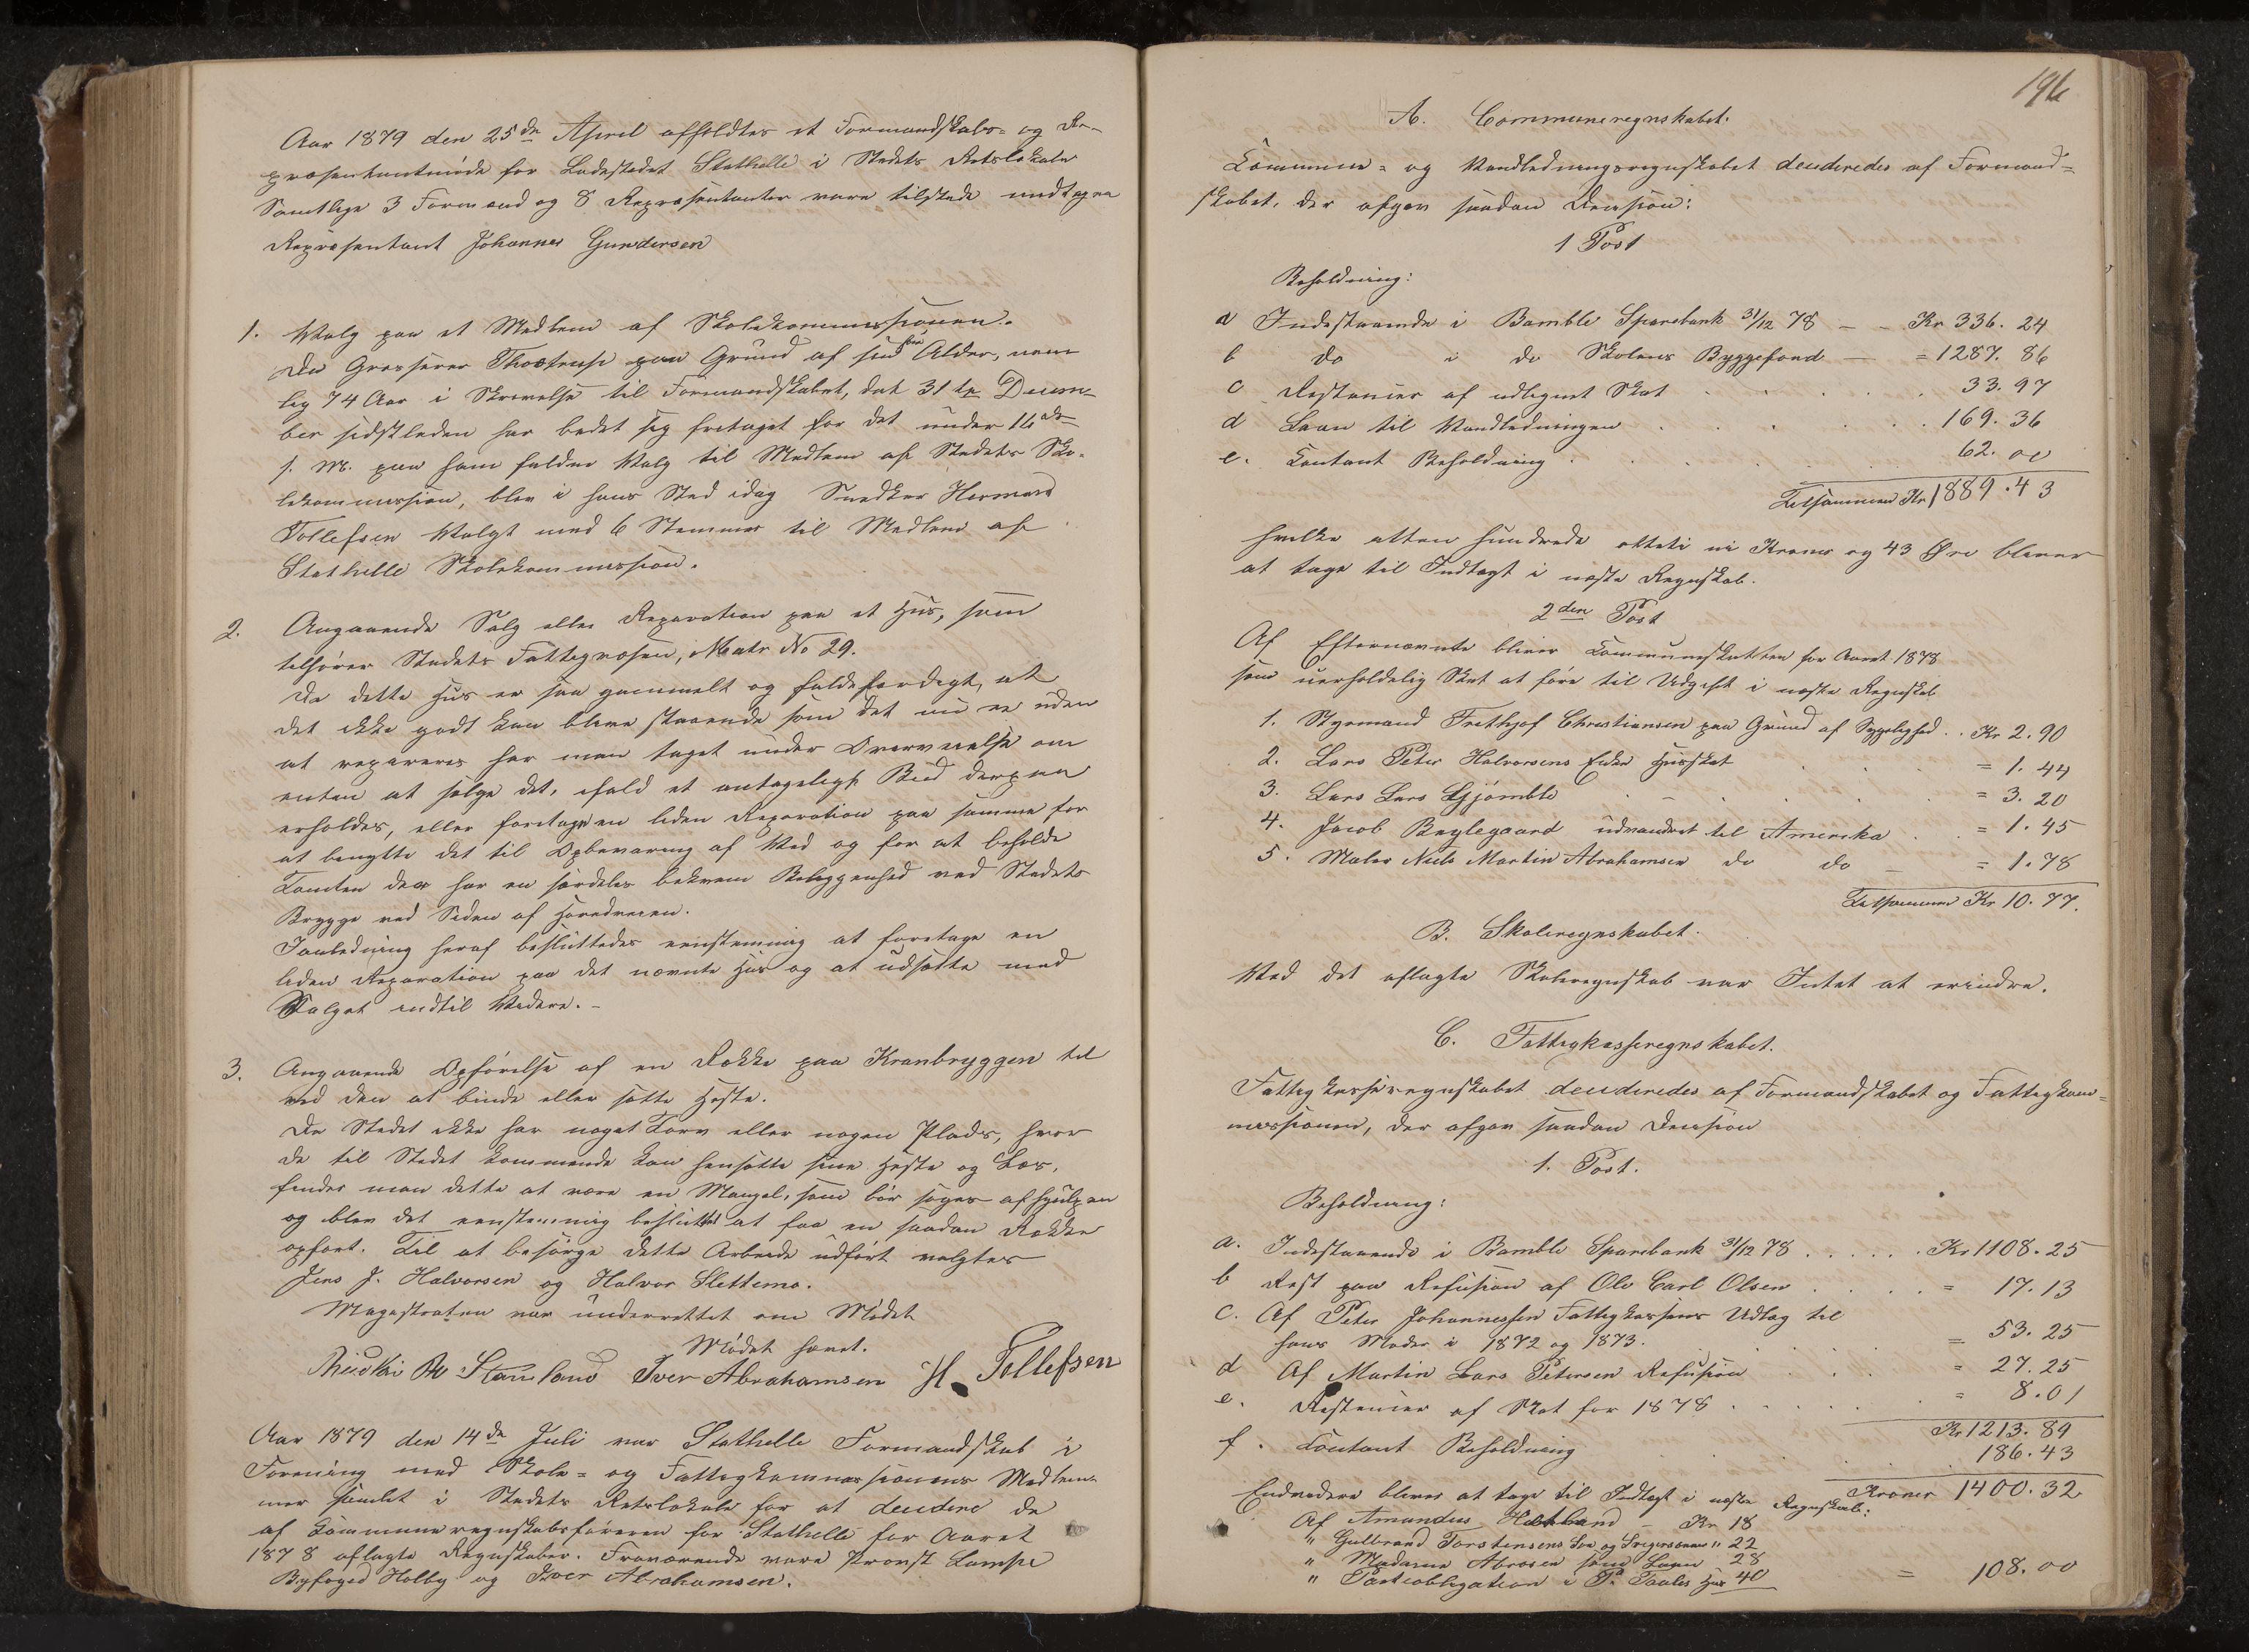 Aar 1879 den 25de April afholdtes et Formandskabs- og Re-
præsentantmöde for Ladestedet Stathelle i Stedets Retslokale
Samtlige 3 Formænd og 8 Repræsentanter vare tilstede undtagen
Repræsentant Johannes Gundersen
1. Valg paa et Medlem af Skolekommissionen.
Da Grosserer Thostrup paa Grund af sin höie Alder, nem-
lig 74 Aar i Skrivelse til Formandskabet, dat 31te Decem-
ber sidstleden har bedet sig fritaget for det under 16de
s. M. paa ham faldne Valg til Medlem af Stedets Sko-
lekommission, blev i hans Sted idag Snedker Herman
Tollefsen Valgt med 6 Stemmer til Medlem af
Stathelle Skolekommission.
2. Angaaende Salg eller Reparation paa et Huus, som
tilhörer Stedets Fattigvæsen, Matr No 29.
Da dette Hus er saa gammelt og faldefærdigt, at
det ikke godt kan blive staaende som det nu er uden
at repareres har man taget under Overveielse om
enten at sælge det, ifald et antageligt Bud derpaa
erholdes, eller foretage en liden Reparation paa samme for
at benytte det til Opbevaring af Ved og for at beholde
Tomten der har en særdeles bekvem Beliggenhed ved Stedets
Brygge ved Siden af Hovedveien.
I Anledning heraf besluttedes eenstemmig at foretage en
liden Reparation paa det nævnte Hus og at udsætte med
Salget indtil Videre. -
3. Angaaende Opförelse af en Række paa Kranbryggen til
ved den at binde eller sætte Heste.
Da Stedet ikke har noget Torv eller nogen Plads, hvor
de til Stedet kommende kan hensætte sine Heste og Læs,
findes man dette at være en Mangel, som bör söges afhjulpen
og blev det eenstemmig besluttet at faa en saadan Række
opfört. Til at besörge dette Arbeide udfört valgtes
Jens J. Halvorsen og Halvor Slettemo.
Magistraten var underrettet om Mödet
Mödet hævet.
Stamland Iver Abrahamsen H. Tollefsen
Aar 1879 den 14de Juli var Stathelle Formandskab i
Forening med Skole- og Fattigkommissionens Medlem-
mer samlet i Stedets Retslokale for at decidere de
af Kommuneregnskabsföreren for Stathelle for Aaret
1878 aflagte Regnskaber. Fraværende vare Provst Lampe
Byfoged Holby og Iver Abrahamsen.
196
A. Communeregnskabet.
Kommune- og Vandledningsregnskabet decideredes af Formand-
skabet, der afgav saadan Decision:
1 Post
Beholdning:
a Indestaaende i Bamble Sparebank 31/12 78 - - Kr 336. 24
b do i do Skolens Byggefond - = 1287. 86
c Restancer af udlignet Skat . . . . 33. 97
d Laan til Vandledningen . . . . . 169. 36
e. Contant Beholdning . . . . 62. 00
Tilsammen Kr 1889. 43
hvilke atten hundrede otteti ni Kroner og 43 Øre bliver
at tage til Indtægt i næste Regnskab.
2den Post
Af Efternævnte bliver Kommuneskatten for Aaret 1878
som uerholdelig Skat at före til Udgift i næste Regnskab
1. Styrmand Frithjof Christiansen paa Grund af Sygelighed . . Kr 2. 90
2. Lars Peter Halvorsens Enke Husskat . . = 1. 44
3. Lars Lars Gjömble . . . = 3. 20
4. Jacob Bryglegaard udvandret til Amerika . = 1. 45
5. Maler Niels Martin Abrahamsen do do - = 1. 78
Tilsammen Kr 10. 77.
B. Skoleregnskabet.
Ved det aflagte Skoleregnskab var Intet at erindre.
C. Fattigkasseregnskabet.
Fattigkasseregnskabet decideredes af Formandskabet og Fattigkom-
missionen, der afgav saadan Decision
1. Post.
Beholdning:
a. Indestaaende i Bamble Sparebank 31/12 78 . . . . . Kr 1108. 25
b Rest paa Refusion af Ole Carl Olsen . . . . = 17. 13
c. Af Peter Johannessen Fattigkassens Udlæg til
hans Moder i 1872 og 1873. . . . = 53. 25
d Af Martin Lars Petersen Refusion . . . = 27. 25
e. Restancer af Skat for 1878 . . . . . = 8. 01
Kr 1213. 89
f. Contant Beholdning . . . . 186. 43
Kroner 1400. 32
Endvidere bliver at tage til Indtægt i næste Regnskab:
Af Amandus - Kr 18
" Gulbrand Torstensens " 22
" Madame Abrosen som Laan 28
" Panteobligation i P. Paules Hus 40 = 108. 00